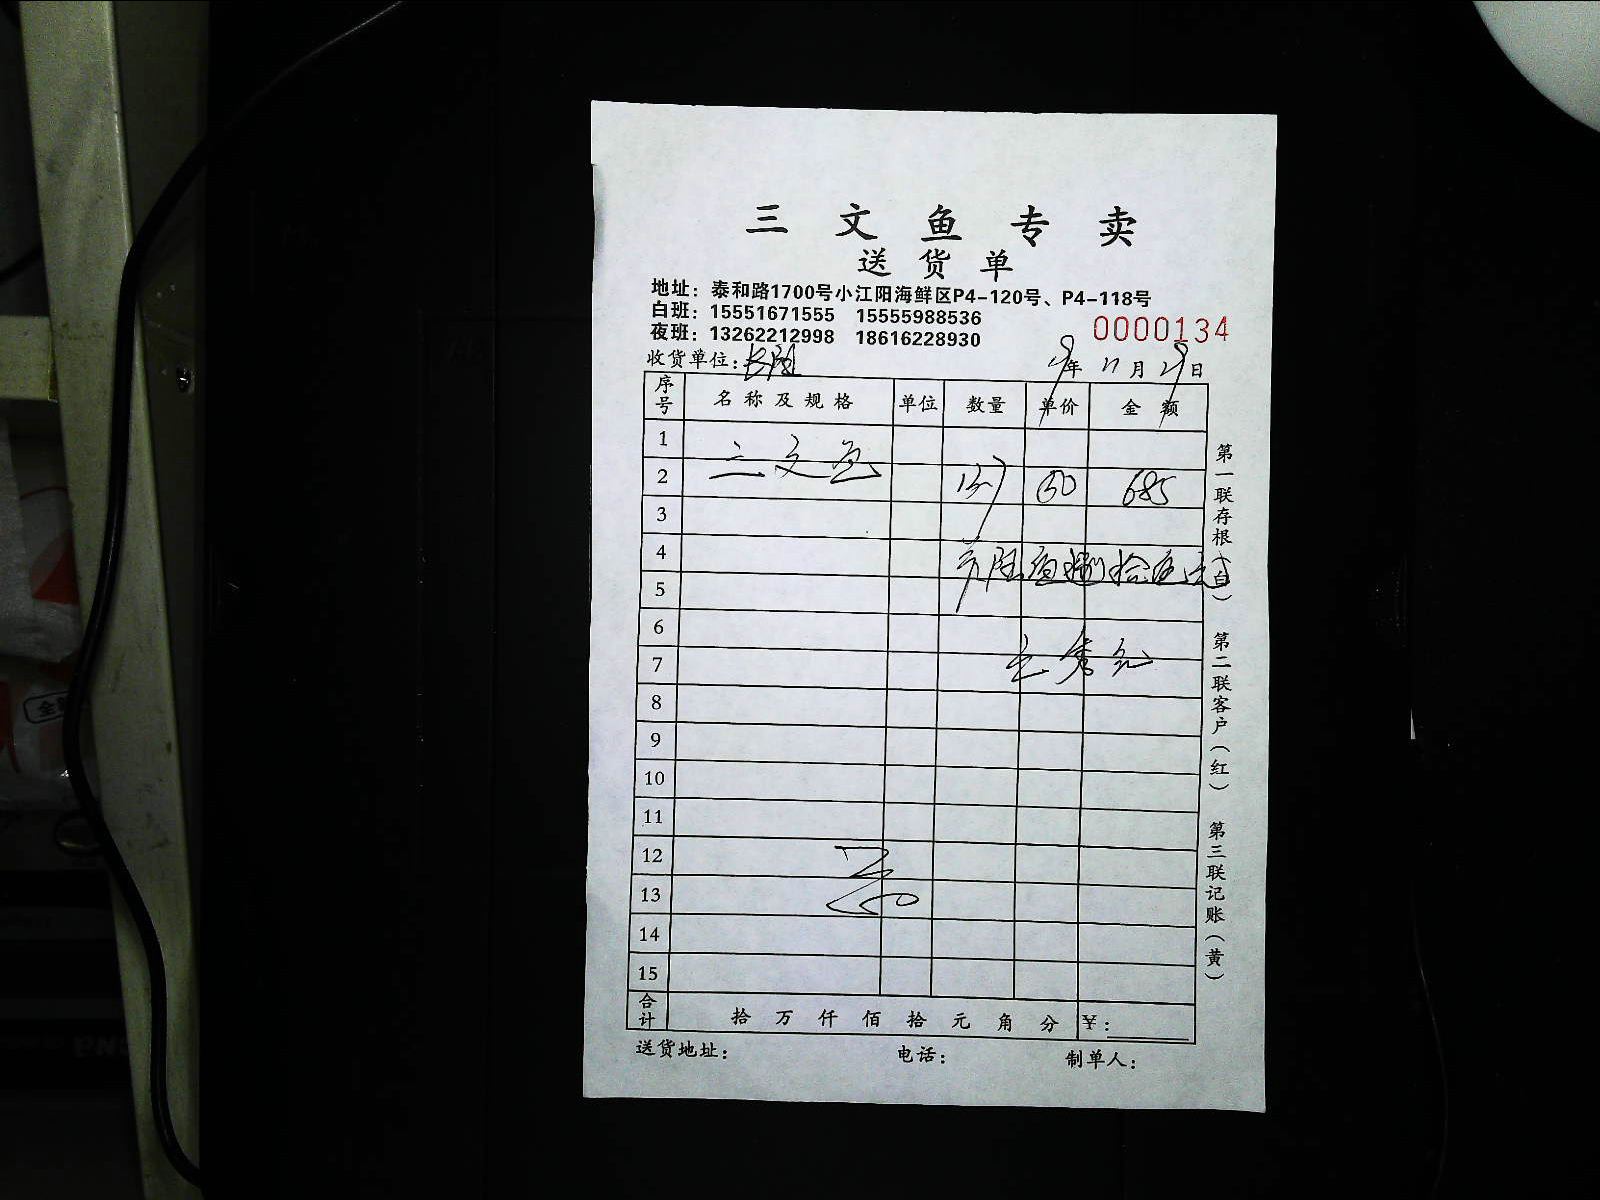 三文鱼专卖
送货单
地址：泰和路1700号小江阳海鲜区P4-120号、P4-118号
白班：15551671555 15555988536
夜班：13262212998 18616228930
0000134
收货单位：
年 11 月 日
序号 名称及规格 单位 数量 单价 金额
1
三文鱼
2 137 50 685
3
4
陆佰捌拾伍元
5
6
7
8
9
10
11
12
13
14
15
合计 拾 万 仟 佰 拾 元 角 分 ￥：
送货地址： 电话： 制单人：
第一联存根（白） 第二联客户（红） 第三联记账（黄）